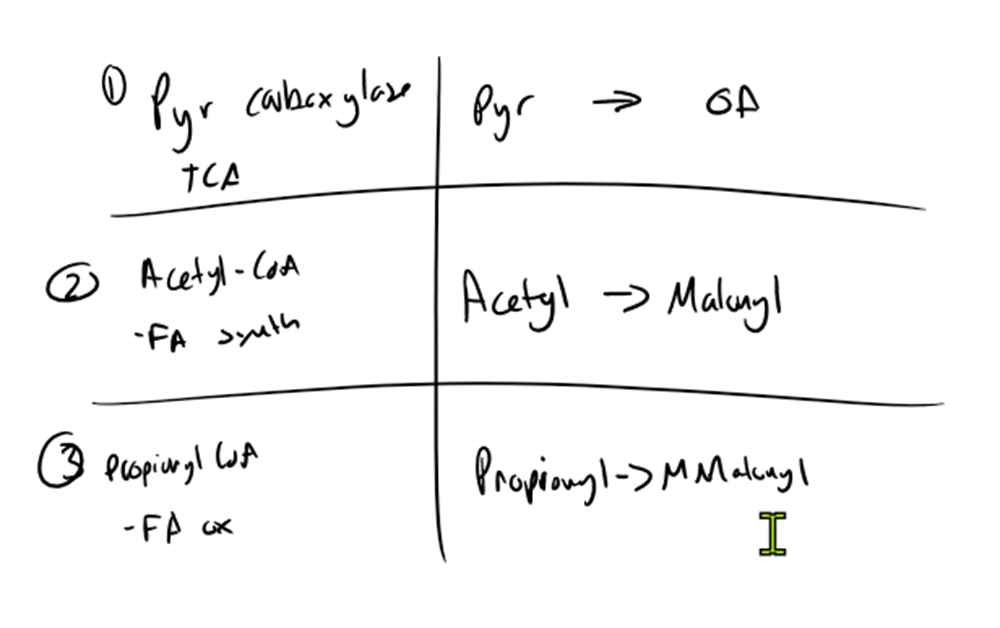 ① Pyr carboxylase
Pyr → OA
TCA
② Acetyl-CoA
-FA synth
Acetyl → Malonyl
③ Propionyl CoA
-FA ox
Propionyl -> MMalonyl